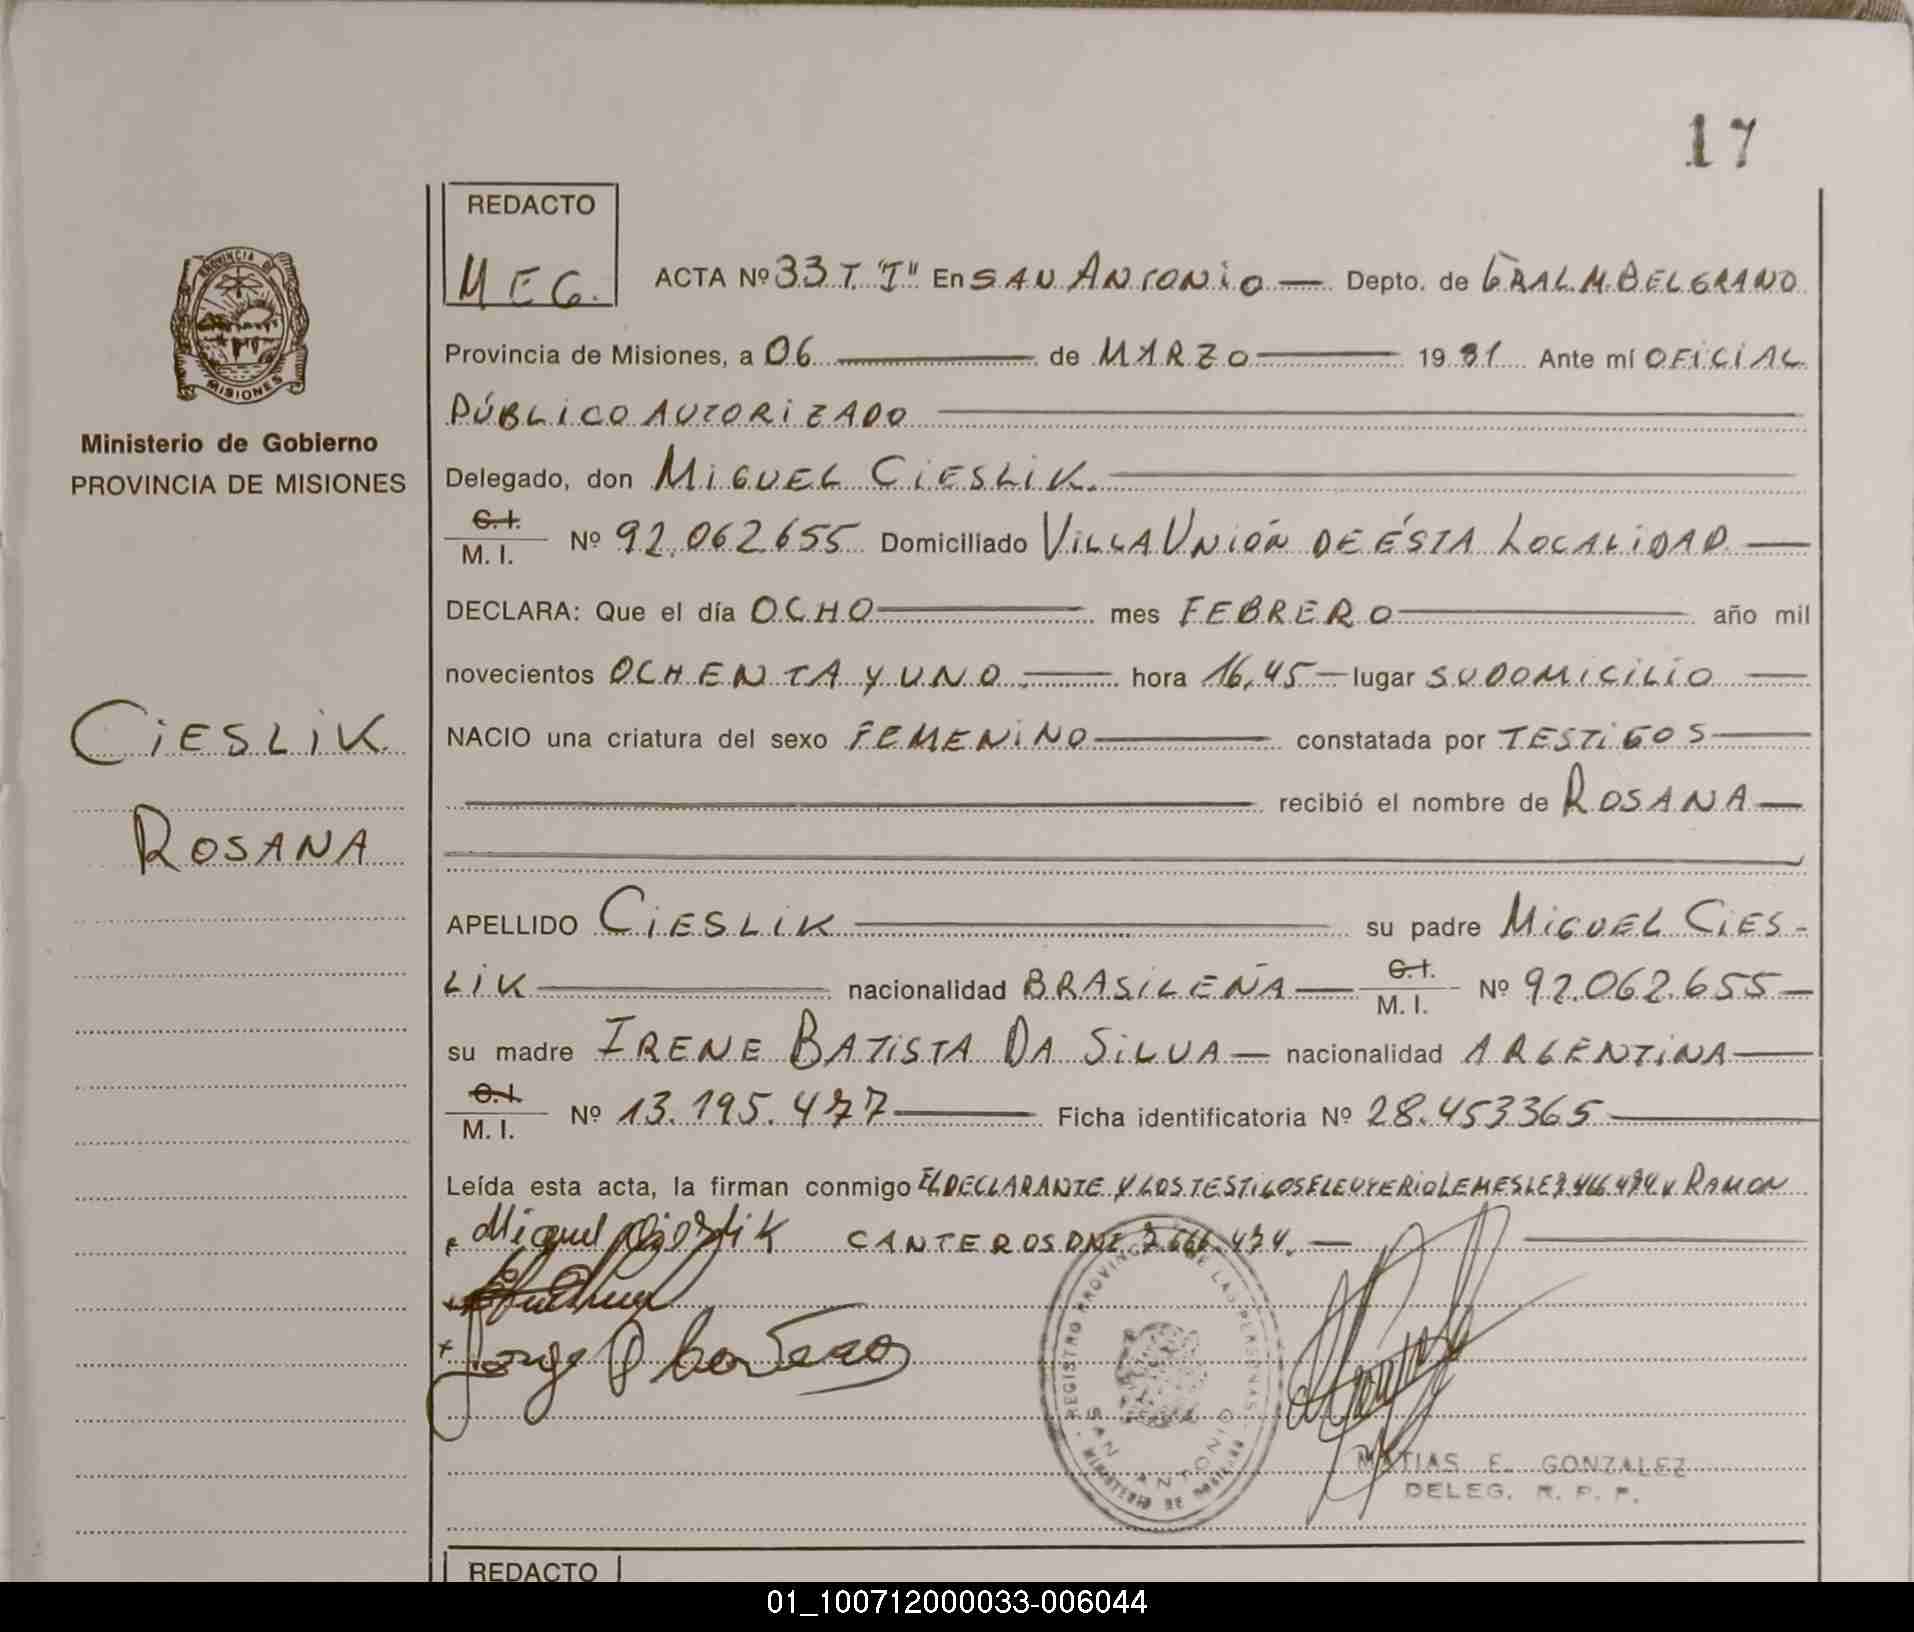 17
REDACTO
MEG.
ACTA Nº 33 T. "I" En SAN ANTONIO Depto. de GRAL. M. BELGRANO
Provincia de Misiones, a 06 de MARZO 1981 Ante mí OFICIAL
PÚBLICO AUTORIZADO
Delegado, don MIGUEL CIESLIK.
C. I.
M. I. Nº 92.062.655 Domiciliado VILLA UNIÓN DE ÉSTA LOCALIDAD
DECLARA: Que el día OCHO mes FEBRERO año mil
novecientos OCHENTA Y UNO hora 16,45 lugar SU DOMICILIO
NACIO una criatura del sexo FEMENINO constatada por TESTIGOS
recibió el nombre de ROSANA
APELLIDO CIESLIK su padre MIGUEL CIES-
LIK nacionalidad BRASILEÑA C. I. M. I. Nº 92.062.655
su madre IRENE BATISTA DA SILVA nacionalidad ARGENTINA
C. I.
M. I. Nº 13.195.477 Ficha identificatoria Nº 28.453365
Leída esta acta, la firman conmigo EL DECLARANTE Y LOS TESTIGOS ELEUTERIO LEMES LE Y RAMON
Miguel Cieslik CANTEROS DNI
Jorge Canteros
REGISTRO PROVINCIAL DE LAS PERSONAS
SAN ANTONIO
MINISTERIO DE GOBIERNO
MATIAS E. GONZALEZ
DELEG. R. P. P.
PROVINCIA DE
MISIONES
Ministerio de Gobierno
PROVINCIA DE MISIONES
CIESLIK
ROSANA
REDACTO
01_100712000033-006044